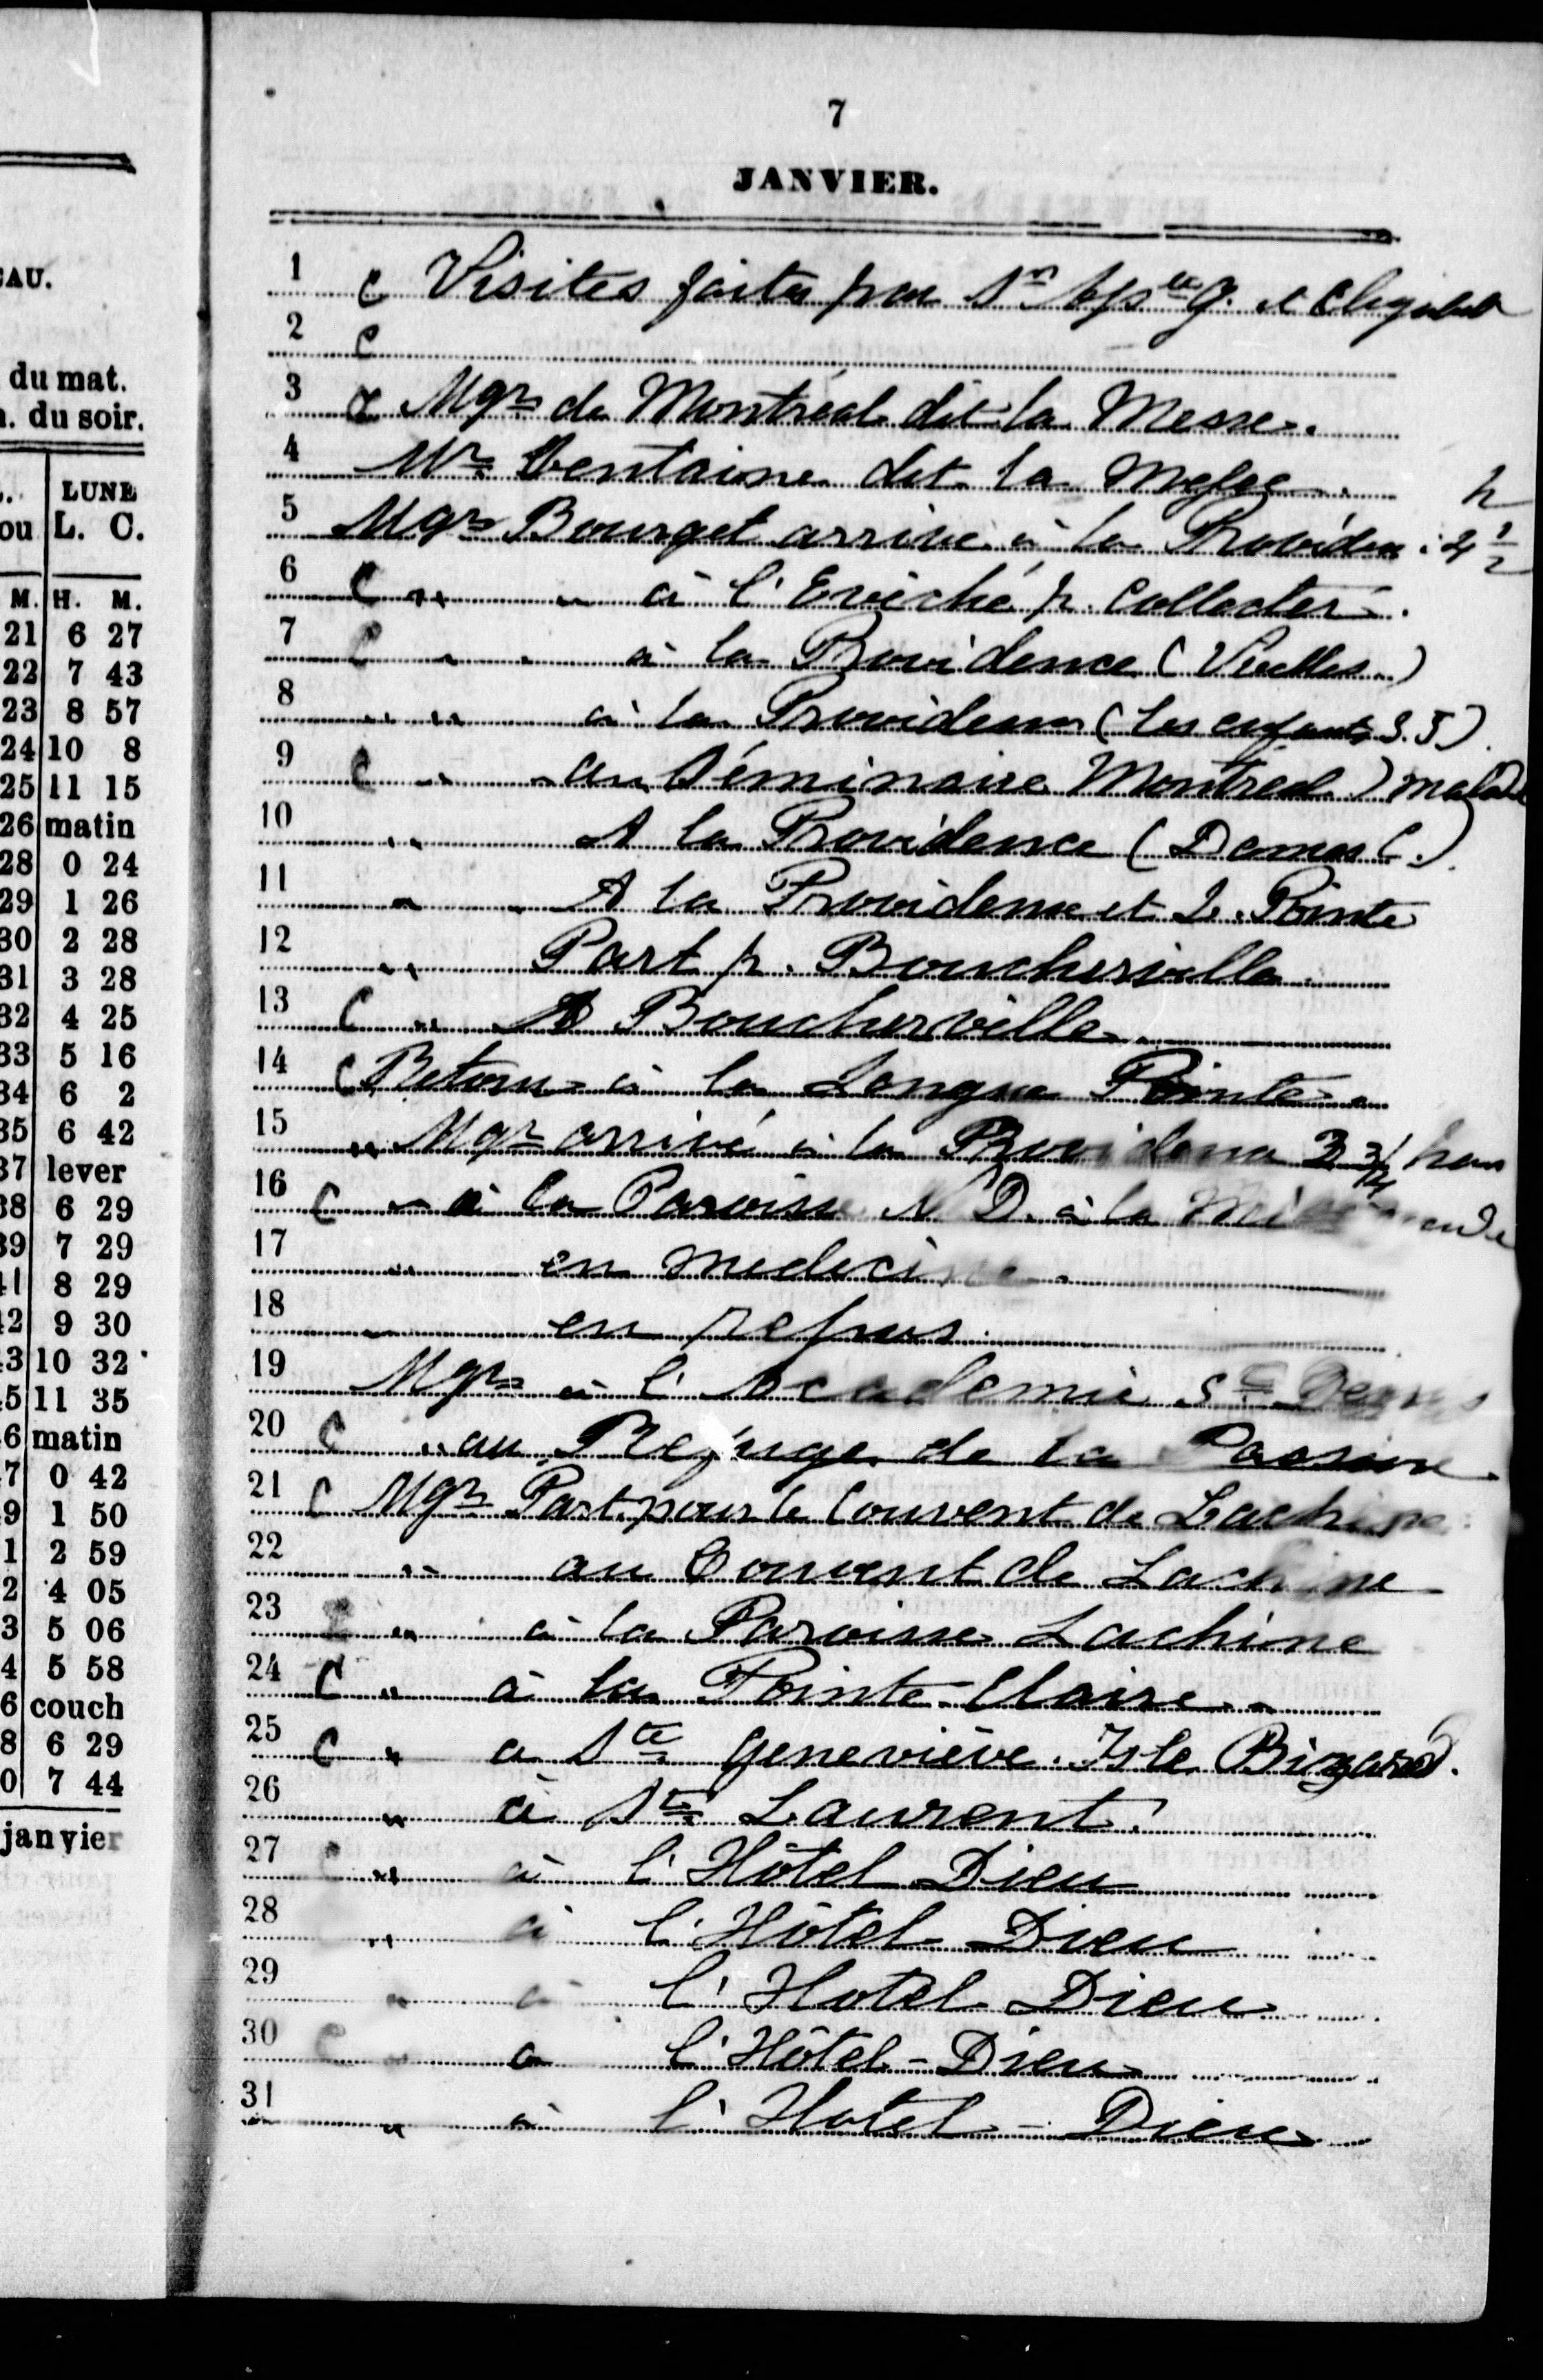 7
JANVIER.
1 C Visites faites par
2 C
3 C Mgr de Montréal dit la Messe.
4 Mr dit la Messe. h
5 Mgr Bourget arrive à la Providen : 4 1/2
6 C " " à l'Evêché p. collecter.
7 C " " à la Providence (Vieilles)
8 " " à la Providence (les enfants S.J)
9 C " " au Séminaire Montréal) malade
10 " A la Providence (Dames C.)
11 " " A la Providence et L. Pointe
12 " Part p. Boucherville
13 C " A Boucherville
14 C Retour à la Longue Pointe.
15 " Mgr arrivé à la Providence 3 3/4 heur
16 C " à la Paroisse N D. à la
17 " en medecine.
18 " en repos.
19 Mgr à l'Academie St Denis
20 C " au Refuge de la Passion
21 C Mgr Part pour le Couvent de Lachine
22 " au Couvent de Lachine
23 C " à la Paroisse Lachine
24 C " à la Pointe Claire.
25 C " a Ste Geneviève. Isle Bizard.
26 " à St Laurent.
27 C " à l'Hôtel Dieu
28 " à l'Hôtel Dieu
29 " à l'Hotel Dieu
30 C " a l'Hôtel-Dieu
31 " à l'Hotel-Dieu
EAU.
du mat.
h. du soir.
LUNE
ou L. C.
M. H. M.
21 6 27
22 7 43
23 8 57
24 10 8
25 11 15
26 matin
28 0 24
29 1 26
30 2 28
31 3 28
32 4 25
33 5 16
34 6 2
35 6 42
37 lever
38 6 29
39 7 29
41 8 29
42 9 30
43 10 32
45 11 35
6 matin
7 0 42
9 1 50
1 2 59
2 4 05
3 5 06
4 5 58
6 couch
8 6 29
0 7 44
janvier